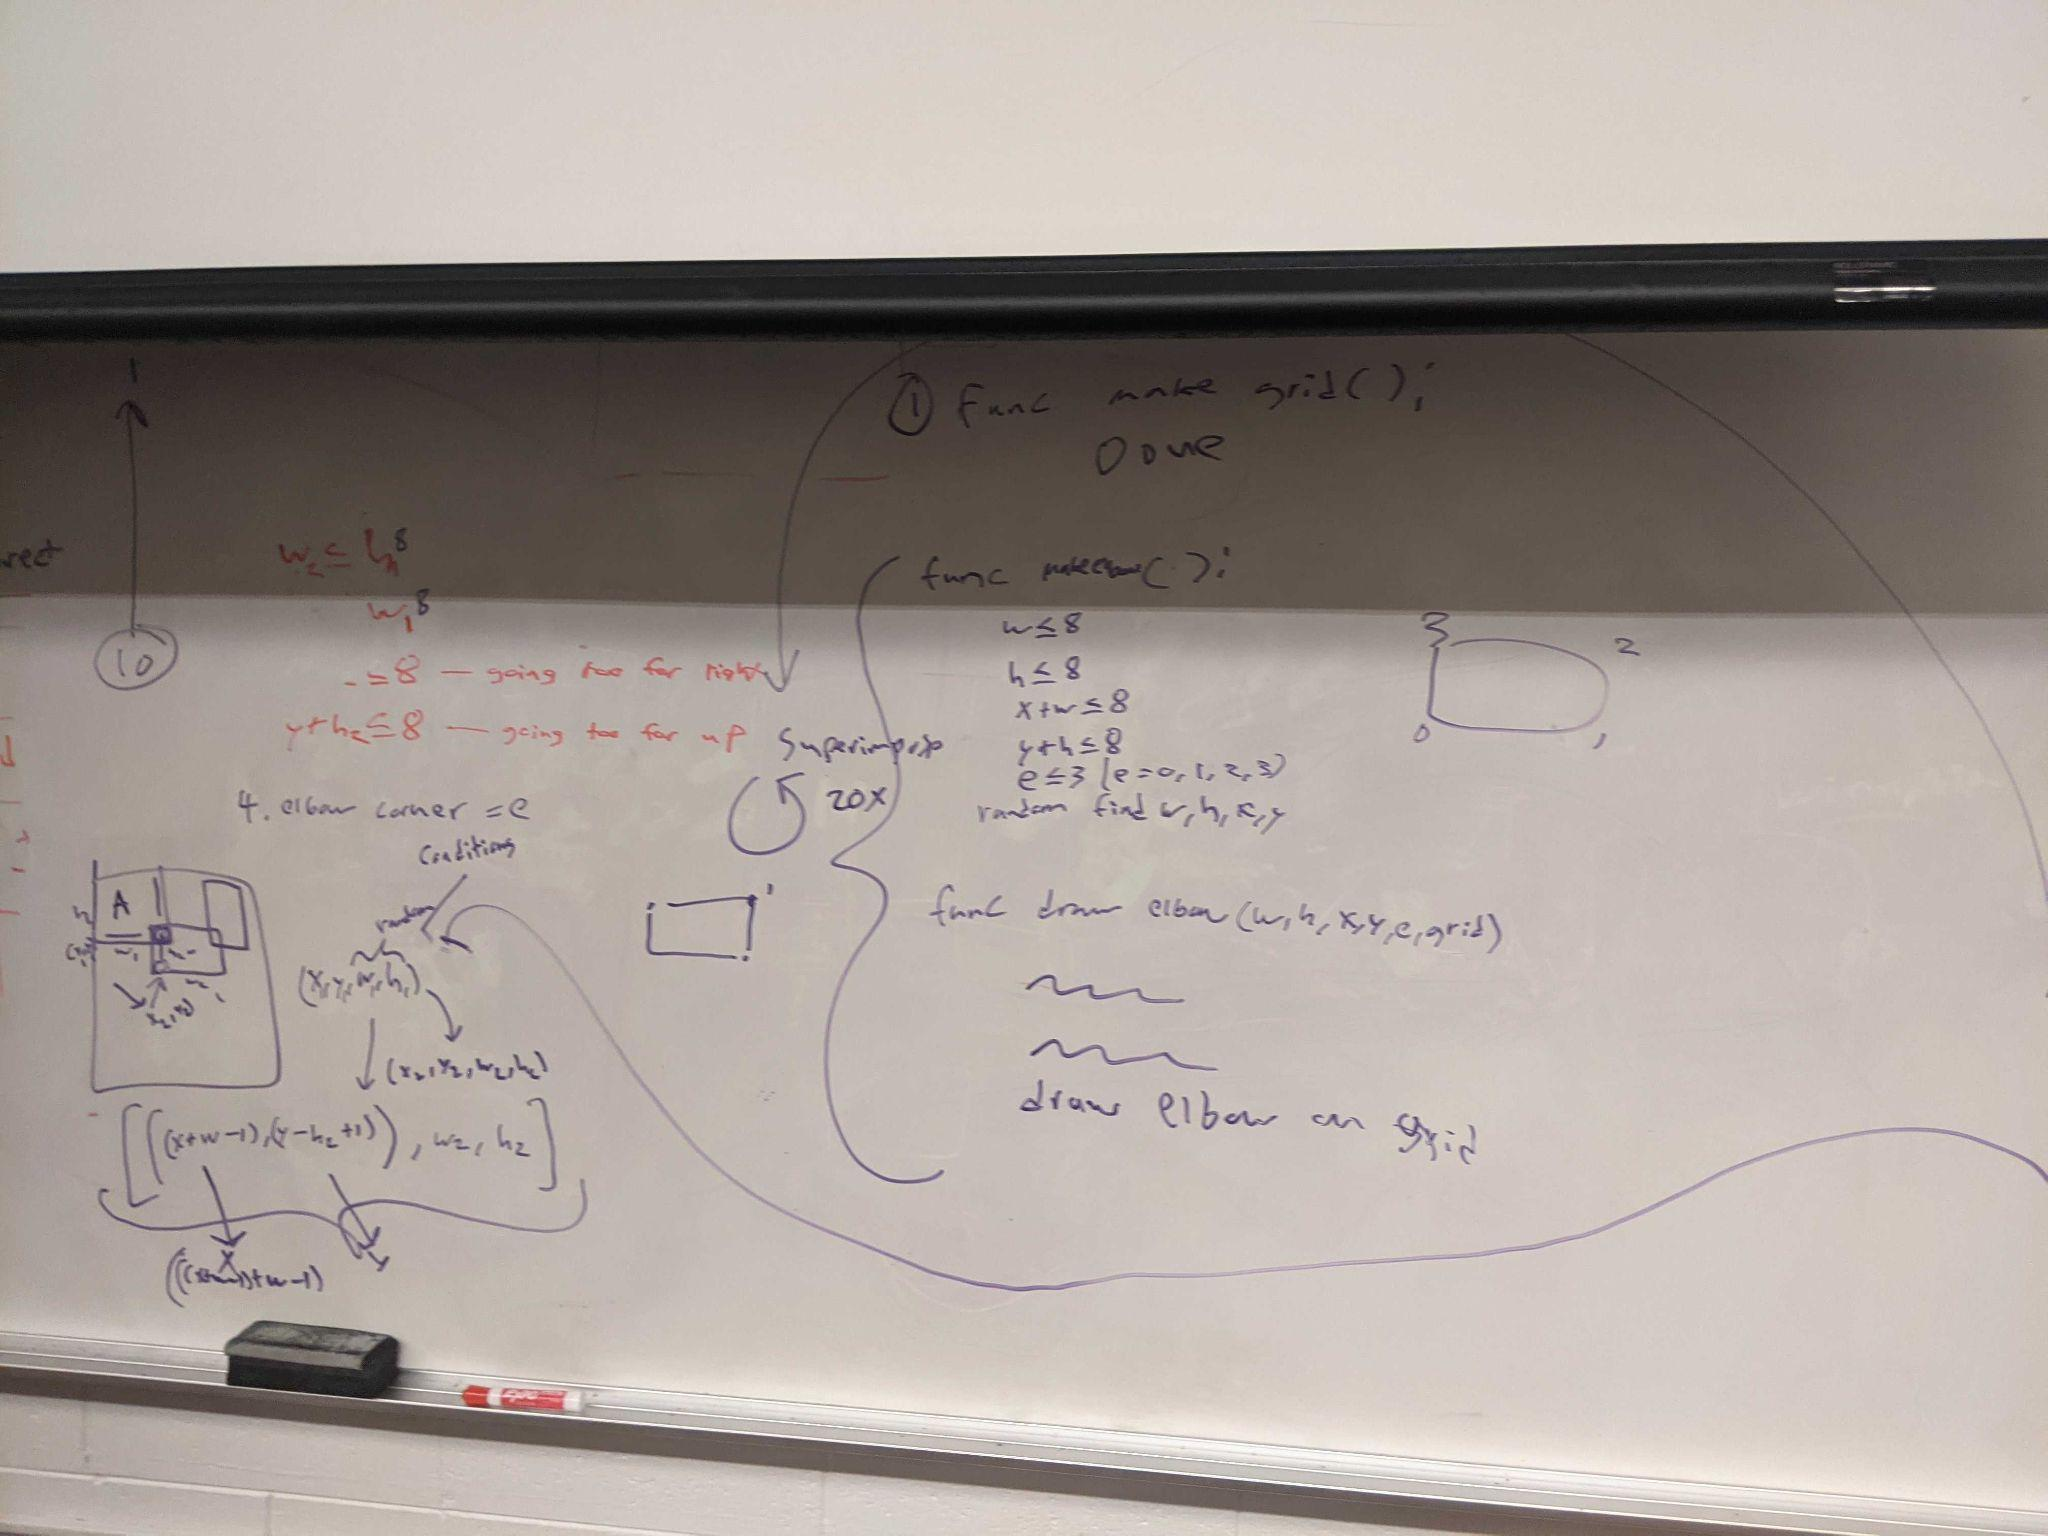 rect
1
10
w₂ ≤ h 8
w₁ 8
- ≤ 8 — going too far right
y+h₂ ≤ 8 — going too far up
4. elbow corner = e
Conditions
random
A
h
(x, y, w, h,)
(x₂, y₂, w₂, h₂)
[((x+w-1), (y-h₂+1)), w₂, h₂]
+w-1)
Superimpose
20x
① func make grid();
Done
func make elbow( );
w ≤ 8
h ≤ 8
x+w ≤ 8
y+h ≤ 8
e ≤ 3 (e=0, 1, 2, 3)
random find w, h, x, y
3 2
0 1
func draw elbow (w, h, x, y, e, grid)
draw elbow on grid
expo